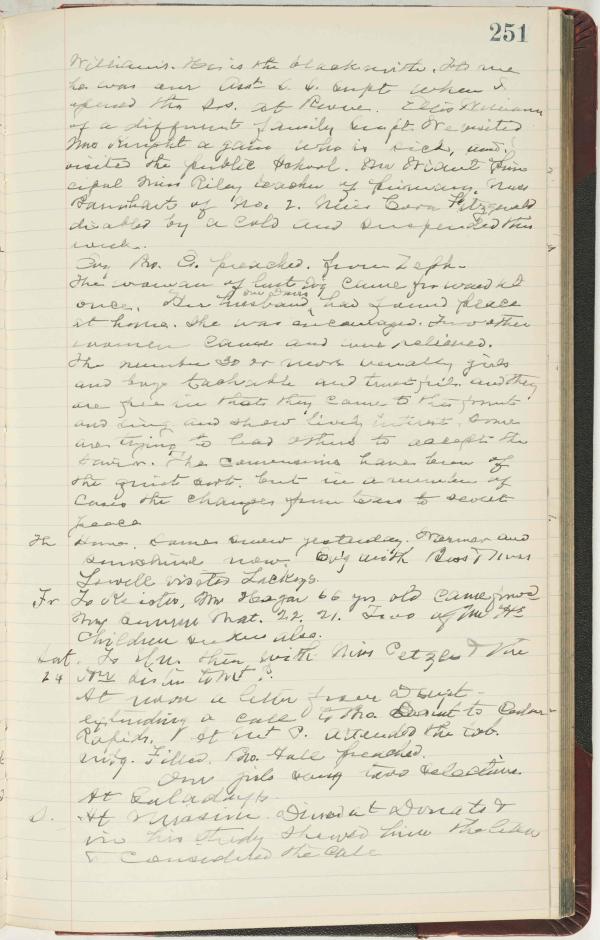 251
Williams. He is the blacksmith. Told me
he was our Asst S. S. Supt when I
opened the S.S. at Revere. Ellis Williams
of a different family Supt. We visited
Mrs Knight again who is sick, and
visited the public school. Mr Wiant Prin
cipal Miss Riley teacher of primary. Miss
Barnhart of No. 2. Miss Cora Fitzgerald
disabled by a cold and suspended this
week.
Evg Bro. D. preached. from Zeph.
The woman of last Evg came forward at
once. Her husband had found peace
at home. She was encouraged. Two other
women came and were relieved.
The number 30 or more usually girls
and boys teachable and trustful and they
are free in that they came to the front
and sing and show lively interest. Some
are trying to lead others to accept the
Savior. The conversions have been of
the quiet sort. but in a number of
cases the changes from tears to sweet
peace
Th Home. Some snow yesterday. Warmer and
sunshine now. Evg with Bess
Lowell visited Lackeys.
Fr. To Keister, Mr Hagar 66 yrs old came forwd
My sermon Mat. 22. 21. Two of Mr H's
children seekers also.
Sat. To Un. then with Miss Petzel &
24 to Mt P.
At noon a letter from D Supt
extending a call to Bro to Cedar
Rapids. At Mt P. attended the tab.
mtg. Filled. Bro. Hall preached.
Our girls sang two selections.
At Galadays.
S. At Mission. Dined at Donats &
in his study shewed him the letter
& considered the call